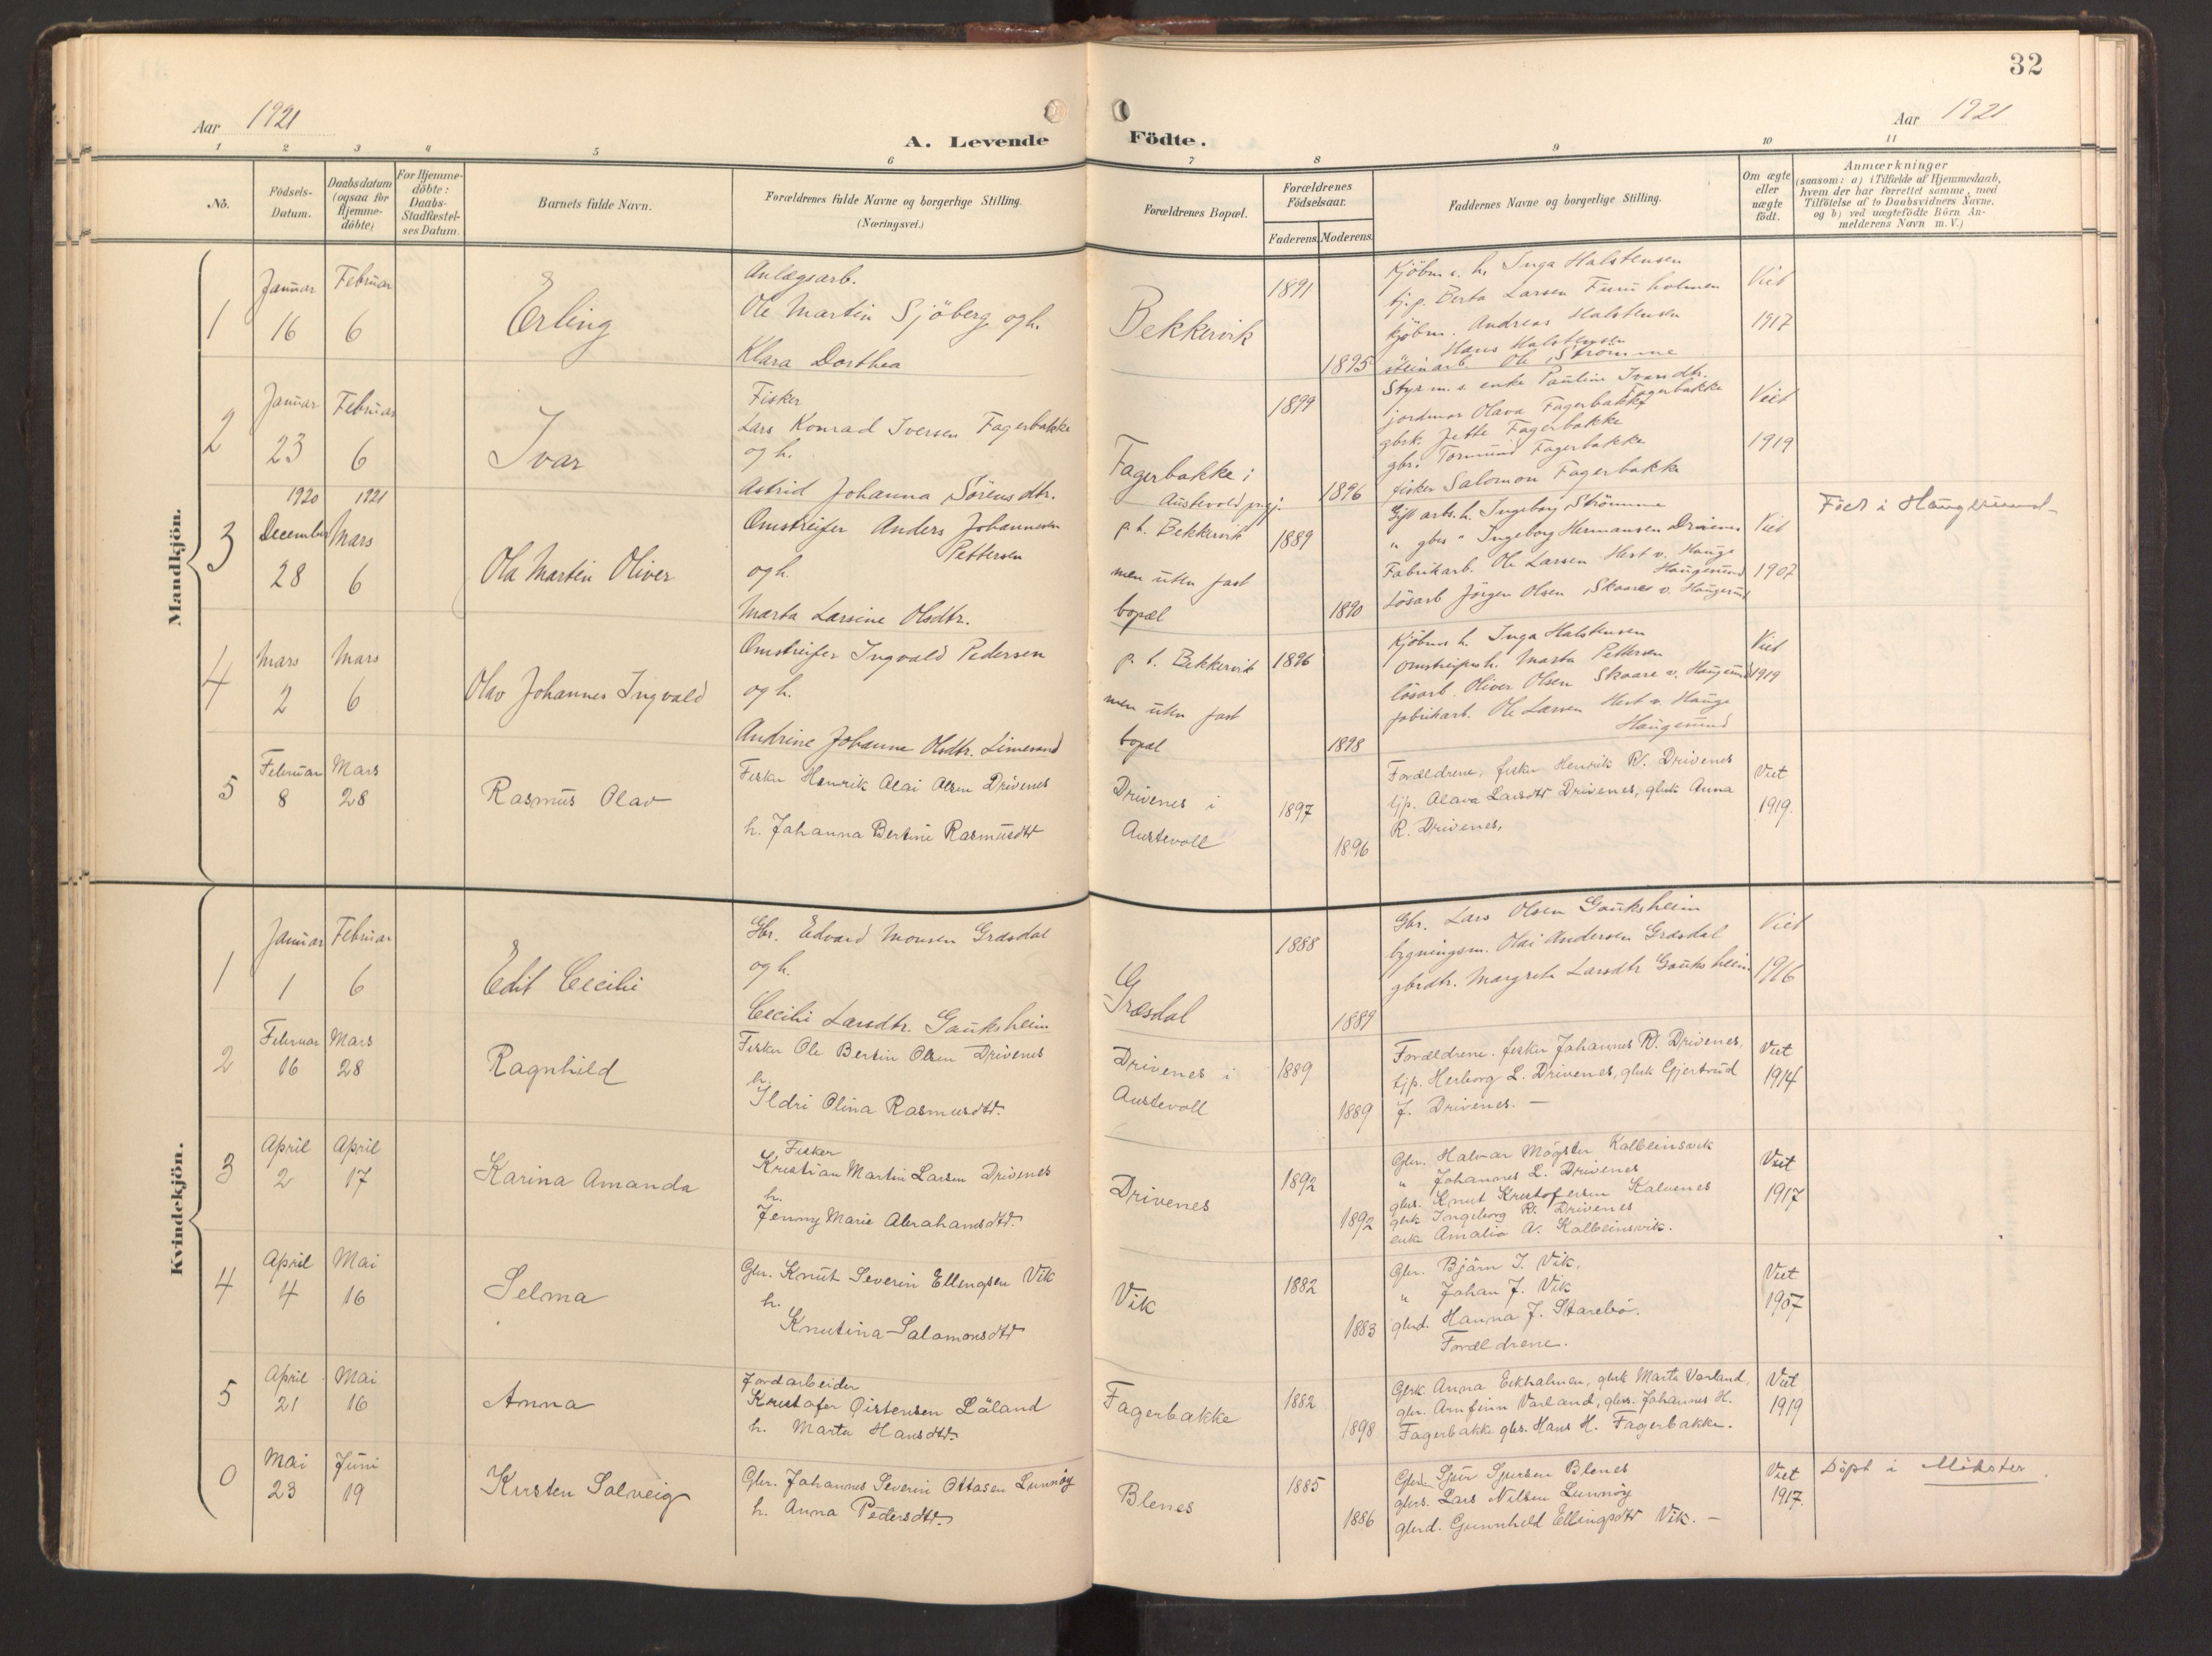 32
Aar 1921
A. Levende Födte.
Aar 1921
1 2 3 4 5 6 7 8 9 10 11
No.
Födsels-Datum.
Daabsdatum (ogsaa for Hjemme-döbte)
For Hjemme-döbte: Daabs-Stadfæstel-ses Datum.
Barnets fulde Navn.
Forældrenes fulde Navne og borgerlige Stilling. (Næringsvei.)
Forældrenes Bopæl.
Forældrenes Födselsaar.
Faderens. Moderens.
Faddernes Navne og borgerlige Stilling.
Om ægte eller uægte födt.
Anmærkninger
(saasom: a) i Tilfælde af Hjemmedaab,
hvem der har forrettet samme, med
Tilföielse af to Daabsvidners Navne.
og b) ved uægtefödte Börn An-
melderens Navn m. V.)
Mandkjön.
1
Januar 16
Februar 6
Erling
Anlægsarb.
Ole Martin Sjöberg og h.
Klara Dorthea
Bekkervik
1891
1895
Kjöbm. s. h. Inga Halstensen
tj.p. Berta Larsen Furuholmen
Kjöbm. Andreas Halstensen
Hans Halstensen
steinarb. Ole Strömme
Viet
1917
2
Januar 23
Februar 6
Ivar
Fisker
Lars Konrad Iversen Fagerbakke
og h.
Astrid Johanna Sörensdtr.
Fagerbakke i
Austevold prgj.
1899
1896
Styrm. s. enke Pauline Ivarsdtr.
Fagerbakke
jordmor Olava Fagerbakke
gbrk. Jette Fagerbakke
gbrs. Tormund Fagerbakke
fisker Salomon Fagerbakke
Viet
1919
3
1920 December 28
1921 Mars 6
Ola Martin Oliver
Omstreifer Anders Johannesen
Pettersen
og h.
Marta Larsine Olsdtr.
p. t. Bekkervik
men uten fast
bopæl
1889
1890
Gift arb. h. Ingeborg Strömme
" gbrs " Ingeborg Hermansen Drivenes
Fabrikarb. Ole Larsen Hest v. Hauge
Haugesund
Lösarb Jörgen Olsen Skaare v. Haugesund
Viet
1907
Föd i Haugesund
4
Mars 2
Mars 6
Olav Johannes Ingvald
Omstreifer Ingvald Pedersen
og h.
Andrine Johanne Olsdtr. Limesand
p. t. Bekkervik
men uten fast
bopæl
1896
1898
Kjöbms h. Inga Halstensen
Omstreifers h. Marta Pettersen
lösarb. Oliver Olsen Skaare v. Haugesund
fabrikarb. Ole Larsen Hest v. Hauge
Haugesund
Viet
1919
5
Februar 8
Mars 28
Rasmus Olav
Fisker Henrik Olai Olsen Drivenes
h. Johanna Bertine Rasmusdtr
Drivenes i
Austevoll
1897
1896
Forældrene, fisker Henrik R. Drivenes
tjp. Olava Larsdtr Drivenes, gbrk Anna
R. Drivenes.
Viet
1919.
Kvindekjön.
1
Januar 1
Februar 6
Edit Cecilie
Gbr. Edvard Monsen Græsdal
og h.
Cecilie Larsdtr. Gauksheim
Græsdal
1888
1889
Gbr. Lars Olsen Gauksheim
bygningsm. Olai Andersen Græsdal
gbrdtr. Margrete Larsdtr Gauksheim
Viet
1916
2
Februar 16
Mars 28
Ragnhild
Fisker Ole Bertin Olsen Drivenes
h.
Ildri Olina Rasmusdtr.
Drivenes i
Austevoll
1889
1889
Forældrene. fisker Johannes R. Drivenes
tjp. Herborg L. Drivenes, gbrk Gjertrud
J. Drivenes. —
Viet
1914
3
April 2
April 17
Karina Amanda
Fisker
Kristian Martin Larsen Drivenes
h.
Jenny Marie Abrahamsdtr.
Drivenes
1892
1892
Gbr. Halvar Mögster Kalbeinsvik
" Johannes L. Drivenes
gbrs. Knut Kristofersen Kalvenes
gbrk Ingeborg R. Drivenes
enke Amalia A. Kalbeinsvik.
Viet
1917
4
April 4
Mai 16
Selma
Gbr. Knut Severin Ellingsen Vik
h.
Knutina Salomonsdtr
Vik
1882
1883
Gbr. Björn I. Vik,
" Johan J. Vik
gbrd. Hanna J. Starebö.
Forældrene.
Viet
1907
5
April 21
Mai 16
Anna
Jordarbeider
Kristofer Öistensen Läland
h. Marta Hansdtr.
Fagerbakke
1882
1898
Gbrk. Anna Eikholmen, gbrk Marta Varland,
gbr. Arnfinn Varland, gbrs. Johannes H.
Fagerbakke gbs. Hans H. Fagerbakke.
Viet
1919
0
Mai 23
Juni 19
Kirsten Solveig
Gbr. Johannes Severin Ottasen Lunnöy
h. Anna Pedersdtr.
Blenes
1885
1886
Gbrd. Sjur Sjursen Blenes
gbrs. Lars Nilsen Lunnöy
gbrd. Gunnhild Ellingsdtr Vik. —
Viet
1917.
Döpt i Mökster.